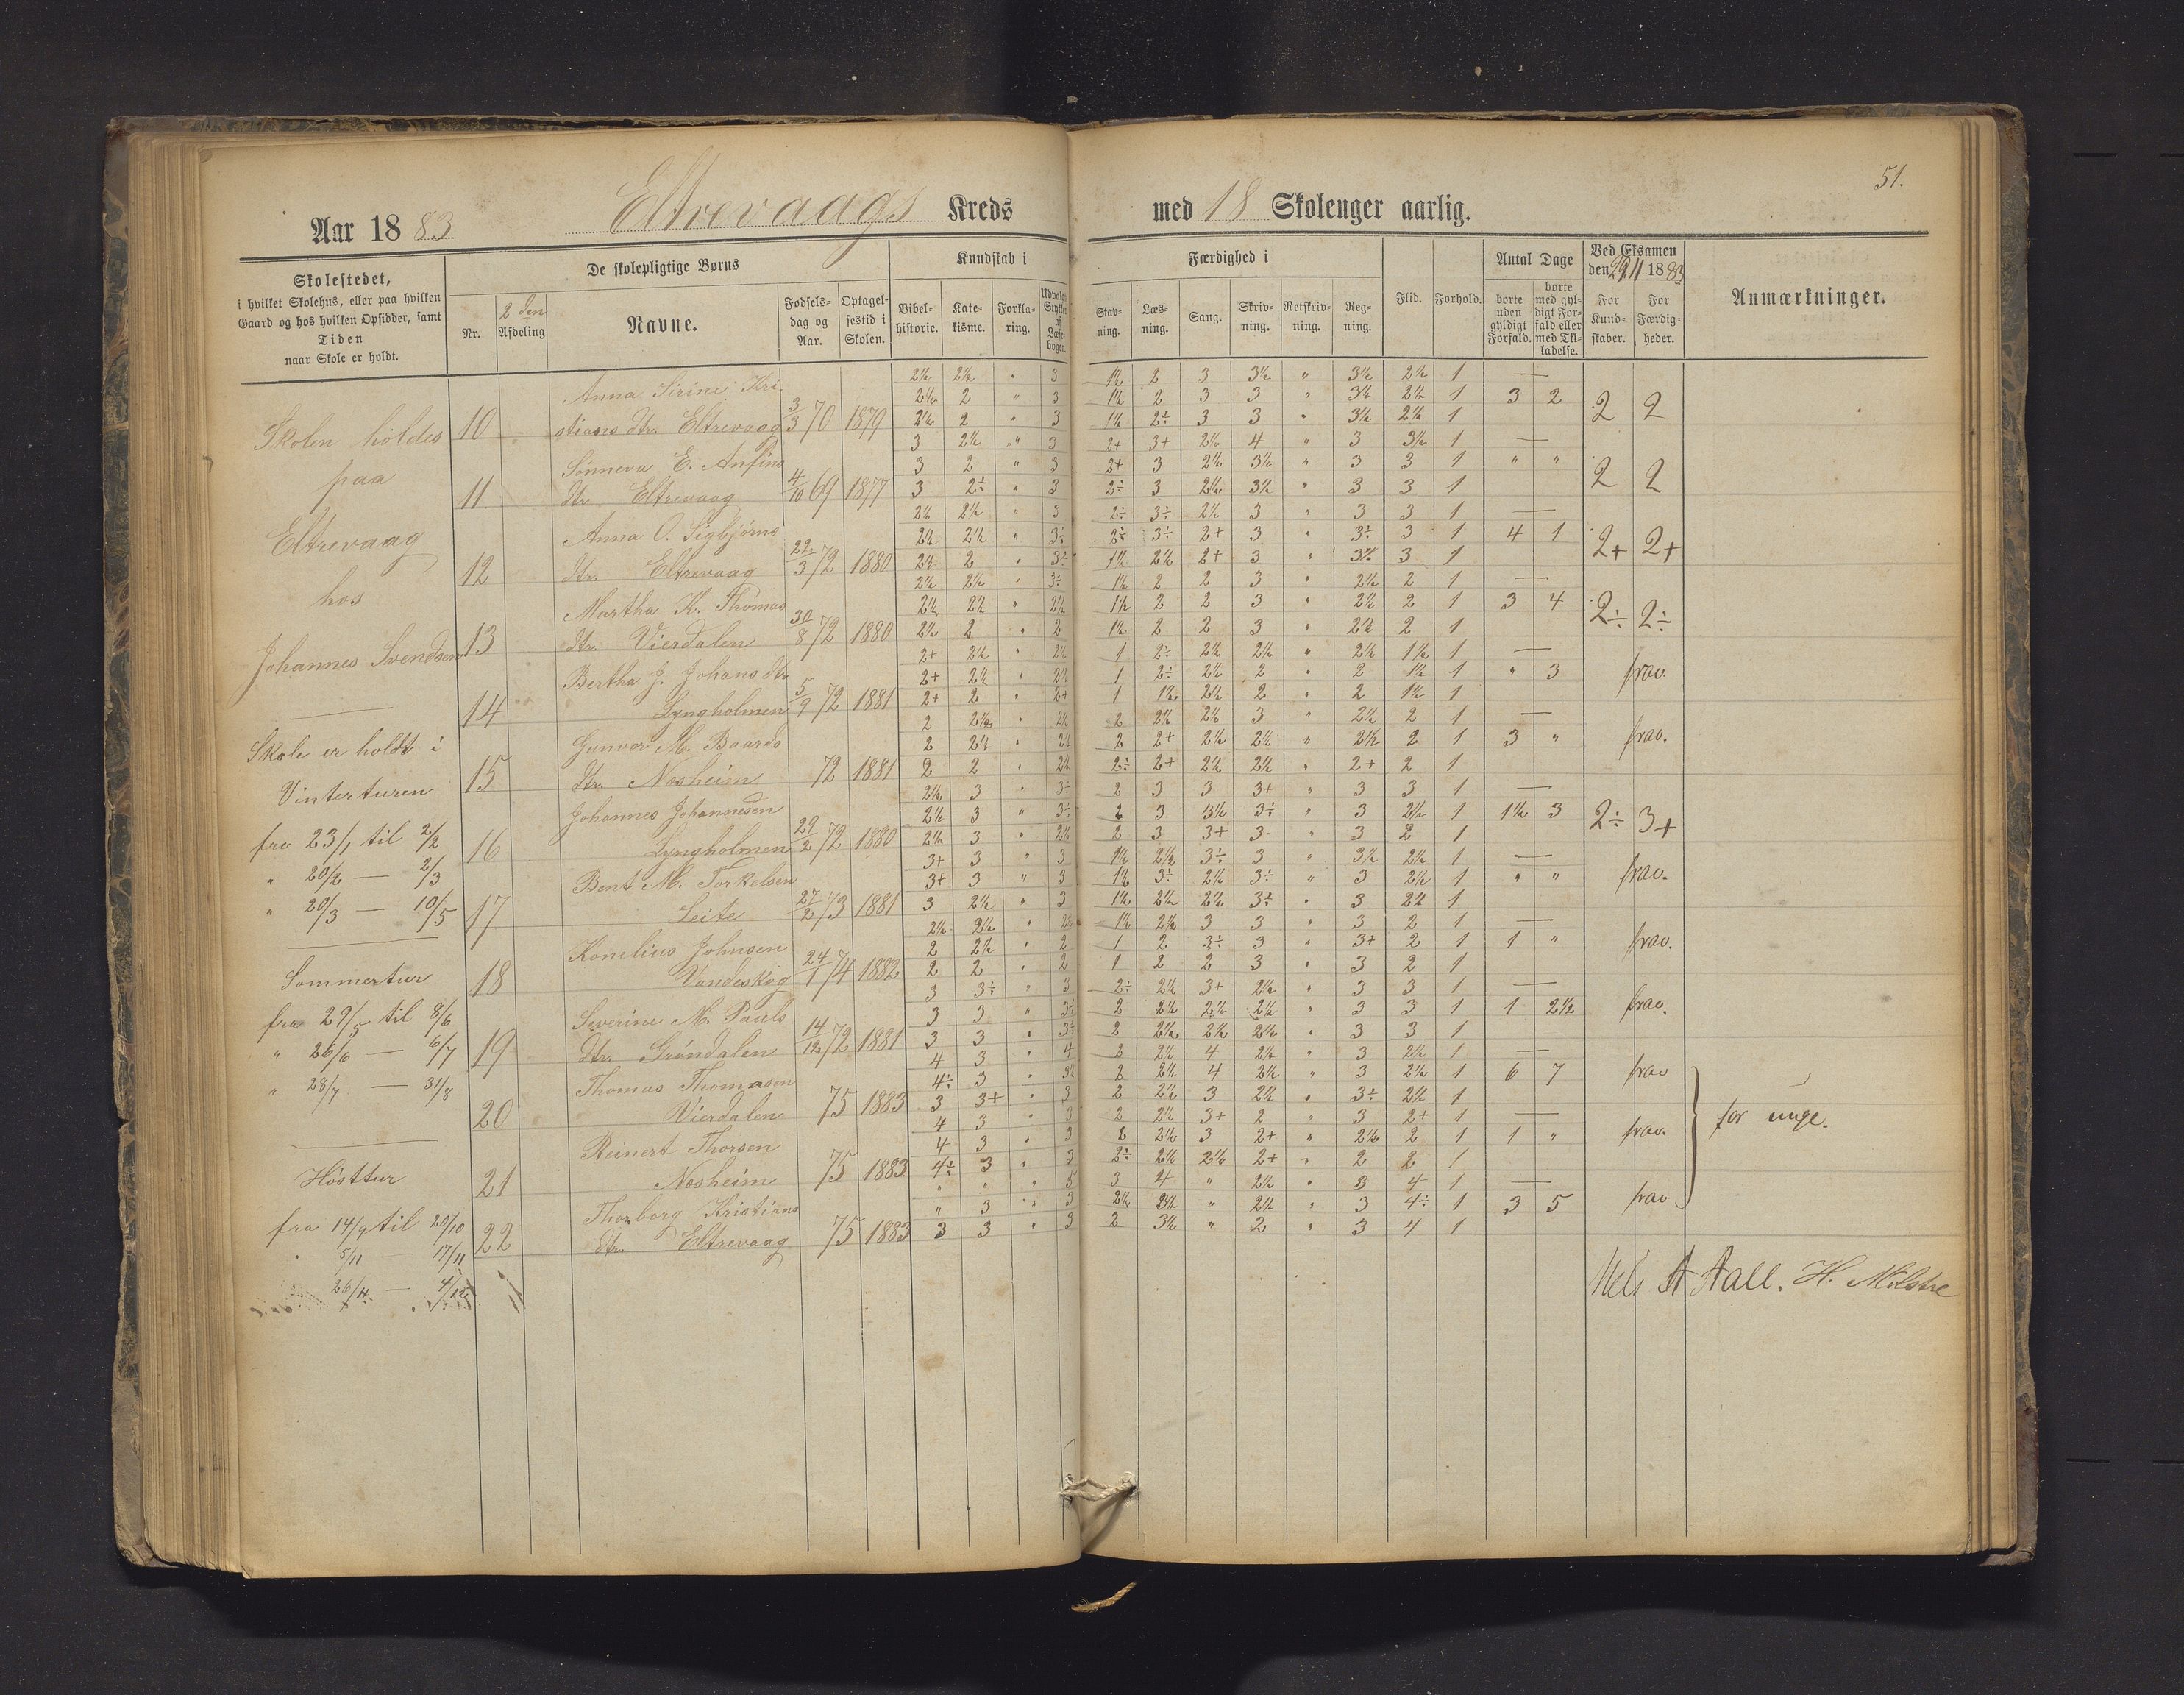 51.
Aar 1883 Eltrevaags Kreds med 18 Skoleuger aarlig.
Skolestedet,
i hvilket Skolehus, eller paa hvilken
Gaard og hos hvilken Opsidder, samt
Tiden
naar Skole er holdt.
De skolepligtige Børns
Nr.
2den
Afdeling
Navne.
Fødsels-
dag og
Aar.
Optagel-
sestid i
Skolen.
Kundskab i
Bibel-
historie.
Kate-
kisme.
Forkla-
ring.
Udvalgte
Stykker
af
Læse-
bogen.
Færdighed i
Stav-
ning.
Læs-
ning.
Sang.
Skriv-
ning.
Retskriv-
ning.
Reg-
ning.
Flid.
Forhold.
Antal Dage
borte
uden
gyldigt
Forfald.
borte
med gyl-
digt For-
fald eller
med Til-
ladelse.
Ved Eksamen
den 29/11 1883
For
Kund-
skaber.
For
Færdig-
heder.
Anmærkninger.
Skolen holdes
paa
Eltrevaag
hos
Johannes Svendsen
Skole er holdt i
Vinterturen
fra 23/1 til 2/2
" 20/2 — 2/3
" 20/3 — 10/5
Sommertur
fra 29/5 til 8/6
" 26/6 — 6/7
" 28/7 — 31/8
Hösttur
fra 14/9 til 20/10
" 5/11 — 17/11
26/11 — 4/12
10 Anna Sirine Kri
stians dtr. Eltrevaag 3/3 70 1879
2½ 2½ " 3 1½ 2 3 3½ " 3½ 2½ 1 —
2½ 2 " 3 1½ 2 3 3 " 3½ 2½ 1 3 2 2 2
2½ 2 " 3 1½ 2÷ 3 3 " 3½ 2½ 1
11 Sönneva E. Anfins
dtr. Eltrevaag 4/10 69 1877
3 2½ " 3 2+ 3+ 2½ 4 " 3 3½ 1 —
3 2 " 3 2+ 3 2½ 3½ " 3 3 1 " " 2 2
3 2÷ " 3 2÷ 3 2½ 3½ " 3 3 1
12 Anna O. Sigbjörns
dtr. Eltrevaag 22/3 72 1880
2½ 2½ " 3 2÷ 3÷ 2½ 3 " 3 3 1 —
2½ 2½ " 3÷ 2÷ 3÷ 2+ 3 " 3÷ 3 1 4 1 2+ 2+
2½ 2 " 3÷ 1½ 2½ 2+ 3 " 3½ 3 1
13 Martha K. Thomas
dtr. Vierdalen 30/8 72 1880
2½ 2½ " 3÷ 1½ 2 2 3 " 2½ 2 1 —
2½ 2½ " 2½ 1½ 2 2 3 " 2½ 2 1 3 4 2÷ 2÷
2½ 2 " 2 1½ 2 2 3 " 2½ 2 1
14 Bertha J. Johans dtr
Lyngholmen 5/9 72 1881
2+ 2½ " 2½ 1 2÷ 2½ 2½ " 2½ 1½ 1 —
2+ 2½ " 2½ 1 2÷ 2½ 2 " 2 1½ 1 " 3 frav.
2+ 2 " 2+ 1 1½ 2½ 2 " 2 1½ 1
15 Gunvor M. Baards
dtr. Nesheim 72 1881
2 2½ " 2½ 2 2½ 2½ 3 " 2½ 2 1 —
2 2½ " 2½ 2 2+ 2½ 2½ " 2½ 2 1 3 " frav.
2 2 " 2½ 2÷ 2+ 2½ 2½ " 2+ 2 1
16 Johannes Johannesen
Lyngholmen 29/2 72 1880
2½ 3 " 3÷ 2 3 3 3+ " 3 3 1 —
2½ 3 " 3÷ 2 3 3½ 3÷ " 3 2½ 1 1½ 3 2÷ 3+
2½ 3 " 2½ 2 3 3+ 3 " 3 2 1
17 Bent M. Torkelsen
Leite 27/2 73 1881
3+ 3 " 3 1½ 2½ 3÷ 3 " 3½ 2½ 1 —
3+ 3 " 3 1½ 3÷ 2½ 3÷ " 3 2½ 1 " " frav.
3 2½ " 3 1½ 2½ 2½ 3÷ " 3 2½ 1
18 Kornelius Johnsen
Vandeskog 24/1 74 1882
2½ 2½ " 2½ 1½ 2½ 3 3 " 3 2 1 —
2 2½ " 2 1 2 3÷ 3 " 3+ 2 1 1 " frav.
2 2 " 2 1 2 2 3 " 3 2 1
19 Severine M. Pauls
dtr. Gröndalen 14/12 72 1881
3 3÷ " 3 2÷ 2½ 3+ 2½ " 3 3 1 —
3 3 " 3÷ 2 2½ 2½ 2½ " 3 3 1 1 2½ frav.
3 3 " 3÷ 2 2½ 2½ 2½ " 3 3 1
20 Thomas Thomasen
Vierdalen 75 1883
4 3 " 4 2 2½ 4 2½ " 3 2½ 1 —
4÷ 3 " 3½ 2 2½ 4 2½ " 3 2½ 1 6 7 frav
3 3+ " 3 2 2½ 3 2½ " 3÷ 2½ 1
21 Reinert Thorsen
Nesheim 75 1883
4 3 " 3 2 2½ 3+ 2 " 3 2+ 1 —
4 3 " 3 2 2½ 3 2+ " 2½ 2 1 1 " frav. for unge.
4÷ 3 " 3 2÷ 2½ 2½ 2+ " 2 2 1
22 Thorborg Kristians
dtr. Eltrevaag 75 1883
" " " 5 3 4 " 2½ " 3 4 1 —
" 3 " 3 2½ 3½ " 2½ " 3 4÷ 1 3 5 frav
3 3 " 3 2 3½ " 2 " 3 4 1
Nels A Aall. H. Milstre